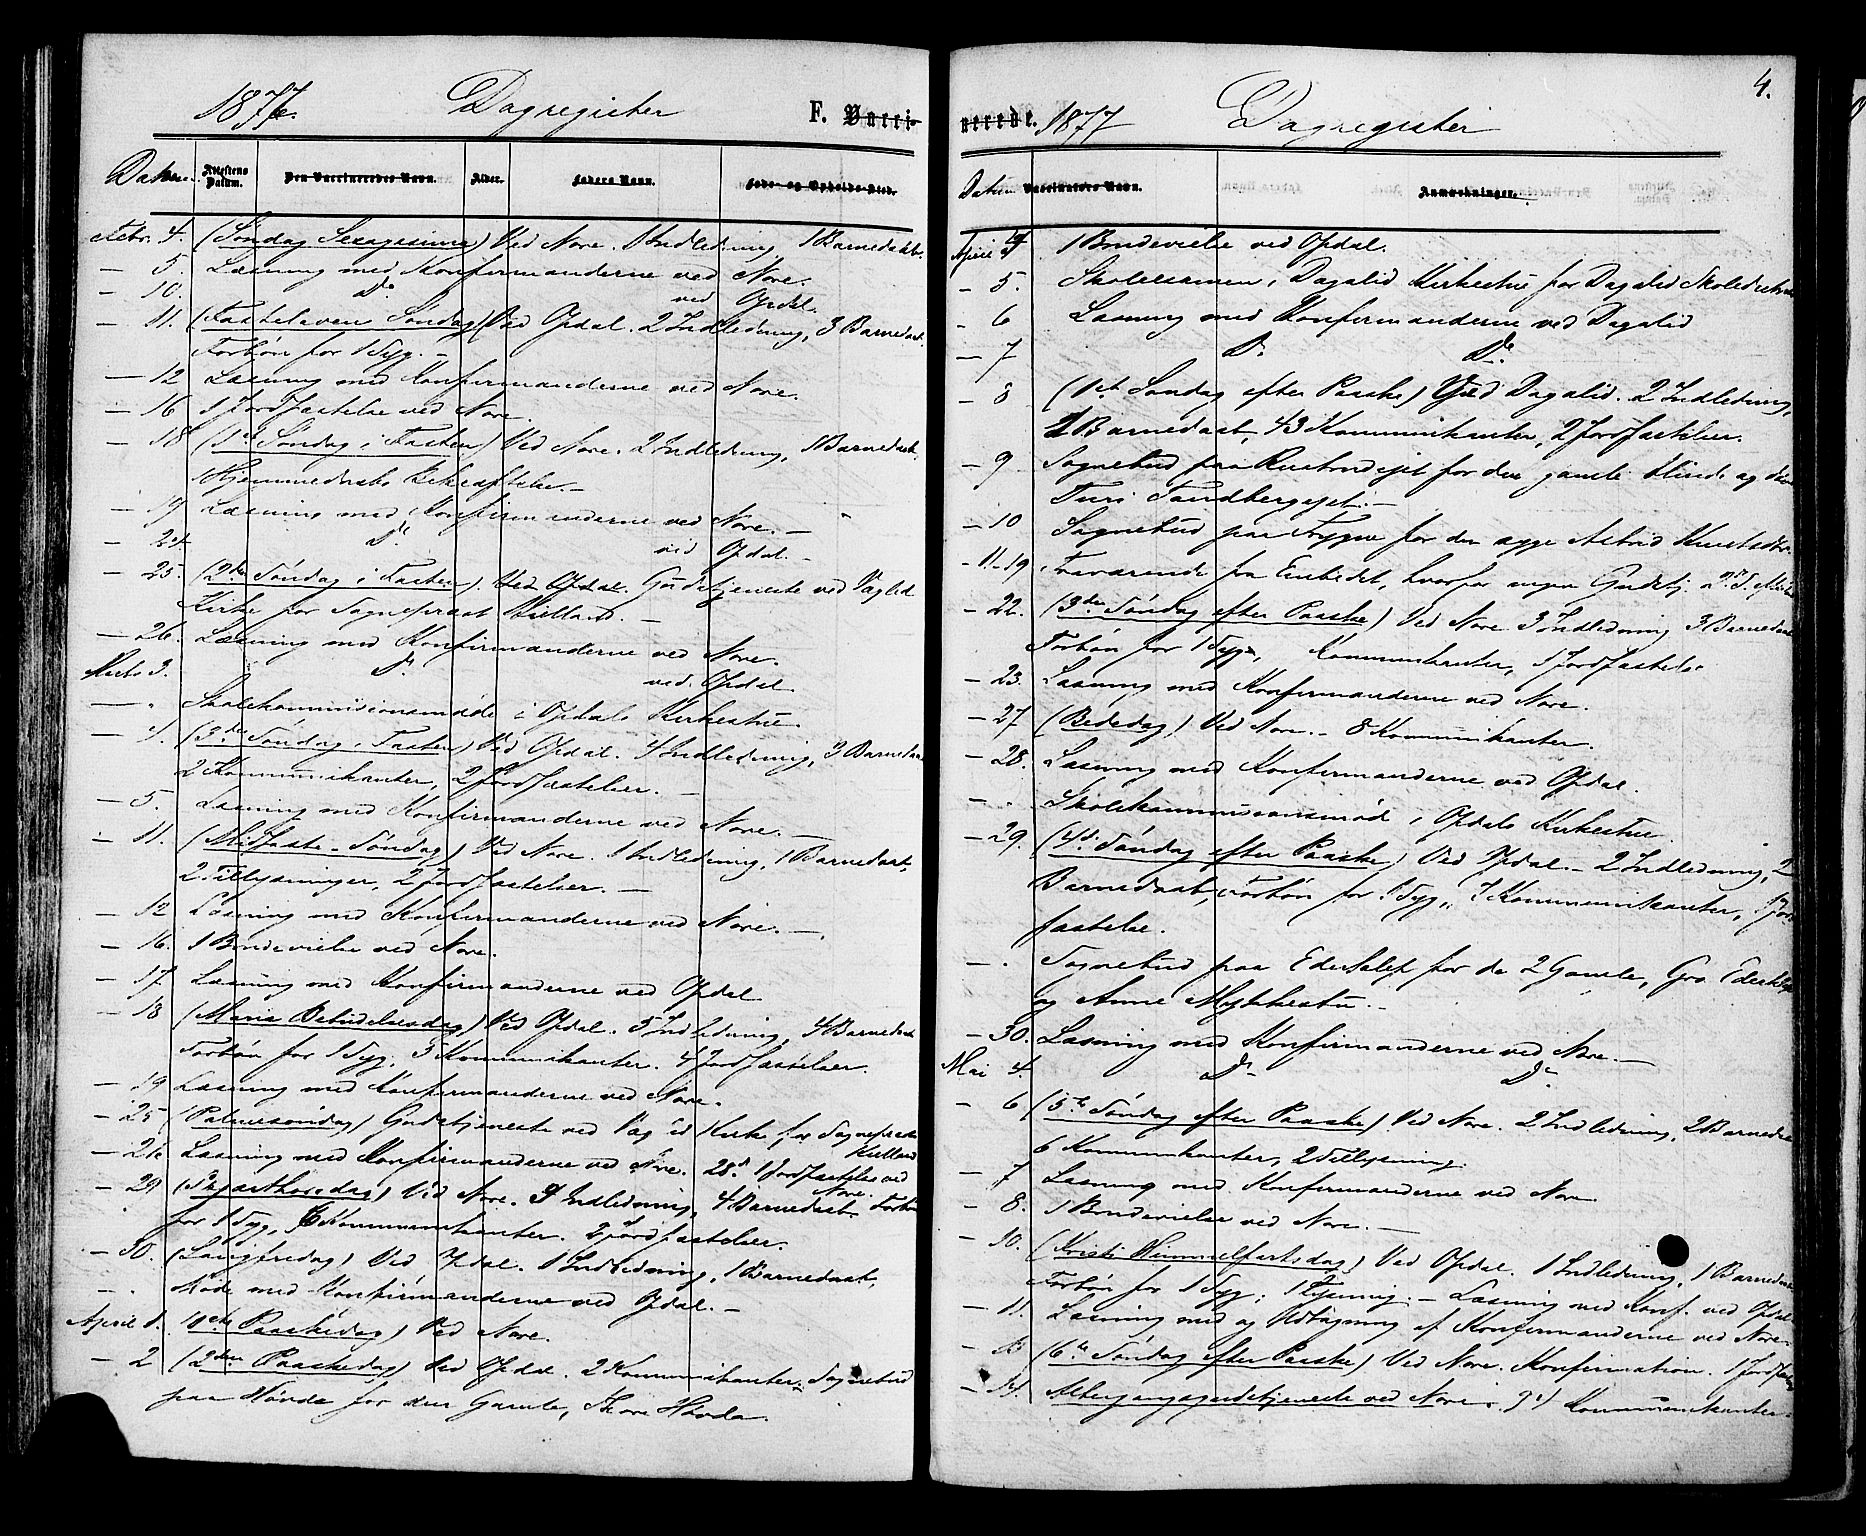 1877. Dagregister F. Vacci-
Datum. Attestens Datum. Den Vaccineredes Navn. Alder. Faders Navn. Føde- og Opholds-Sted.
Febr. 4. (Søndag Sexagesima) Ved Nore. 1 Indledning, 1 Barnedaab.
— 5. Læsning med Konfirmanderne ved Nore.
— 10. Do ved Opdal.
— 11. (Fastelavens Søndag) Ved Opdal. 2 Indledning, 3 Barnedaab.
Forbøn for 1 Syg. —
— 12 Læsning med Konfirmanderne ved Nore.
— 16 1 Jordfæstelse ved Nore.
— 18 (1ste Søndag i Fasten) Ved Nore. 2 Indledning, 1 Barnedaab.
Hjemmedaabs Bekræftelse. —
— 19 Læsning med Konfirmanderne ved Nore. —
— 24 Do ved Opdal. —
— 25. (2den Søndag i Fasten). Ved Opdal. Gudstjeneste ved Væglid
Kirke for Sogneprest Kielland. —
— 26. Læsning med Konfirmanderne ved Nore.
Marts 3. Do ved Opdal.
— . Skolekommissionsmøde i Opdals Kirkestue.
— 4. (3die Søndag i Fasten) Ved Opdal. 4 Indledning, 3 Barnedaab
2 Kommunikanter, 2 Jordfæstelser. —
— 5. Læsning med Konfirmanderne ved Nore. —
— 11. (Midfaste-Søndag) Ved Nore. 1 Indledning, 1 Barnedaab,
2 Tillysninger, 2 Jordfæstelser. —
— 12 Læsning med Konfirmanderne ved Nore. —
— 16. 1 Brudevielse ved Nore.
— 17 Læsning med Konfirmanderne ved Opdal
— 18 (Mariæ Bebudelsesdag) Ved Opdal. 5 Indledning, 4 Barnedaab
Forbøn for 1 Syg. 5 Kommunikanter. 4 Jordfæstelser.
— 19 Læsning med Konfirmanderne ved Nore.
— 25 (Palmesøndag) Gudstjeneste ved Væglid Kirke for Sogneprest
Kielland
— 26 Læsning med Konfirmanderne ved Nore. 28de 1 Jordfæstelse ved
Nore.
— 29 (Skjærthorsdag) Ved Nore. Indledning, 4 Barnedaab. Forbøn
for 1 Syg, 6 Kommunikanter. 2 Jordfæstelser.
— 30. (Langfredag) Ved Opdal. 1 Indledning, 1 Barnedaab,
— . Møde med Konfirmanderne ved Opdal. —
April 1. (1ste Paaskedag) Ved Nore.
— 2 (2den Paaskedag) Ved Opdal. 2 Kommunikanter. Sognebud
paa Hovde for den Gamle, Thore Hovda.
4.
nerede. 1877 Dagregister
Datum Vaccinators Navn. Anmærkninger.
April 4 1 Brudevielse ved Opdal.
— 5. Skoleexamen i Dagalid Kirkestue for Dagalid Skoledistrikt
— 6 Læsning med Konfirmanderne ved Dagalid
— 7 Do Do
— 8 (1ste Søndag efter Paaske) Ved Dagalid. 2 Indledning,
2 Barnedaab, 43 Kommunikanter, 2 Jordfæstelser.
— 9 Sognebud paa for den gamle blinde og døve
Turi —
— 10 Sognebud paa for den syge Astrid
— 11-19 Fraværende fra Embedet, hvorfor ingen Gudstj.
— 22. (3die Søndag efter Paaske) Ved Nore 3 Indledning 3 Barnedaab
Forbøn for 1 Syg, Kommunikanter, 1 Jordfæstelse
— 23. Læsning med Konfirmanderne ved Nore.
— 27 (Bededag) Ved Nore. — 8 Kommunikanter.
— 28. Læsning med Konfirmanderne ved Opdal.
— . Skolekommissionsmød i Opdals Kirkestue
— 29. (4de Søndag efter Paaske) Ved Opdal. — 2 Indledning, 2
Barnedaab, Forbøn for 1 Syg., 7 Kommunikanter, 1 Jord-
fæstelse.
— . Sognebud paa for de 2 Gamle, Gro
og Anne —
— 30. Læsning med Konfirmanderne ved Nore. —
Mai 4. Do Do
— 6 (5te Søndag efter Paaske) Ved Nore. 2 Indledning, 2 Barnedaab
6 Kommunikanter, 2 Tillysning.
— 7 Læsning med Konfirmanderne ved Nore
— 8. 1 Brudevielse ved Nore. —
— 10. (Kristi Himmelfartsdag) Ved Opdal. 1 Indledning, 1 Barnedaab
Forbøn for 1 Syg; 1 Lysning. — Læsning med Konf. ved Opdal
— 11. Læsning med og Udtagning af Konfirmanderne ved Nore
— 13 (6te Søndag efter Paaske) Ved Nore. Konfirmation. 1 Jordfæstelse
— 14. Altergangsgudstjeneste ved Nore. Kommunikanter.